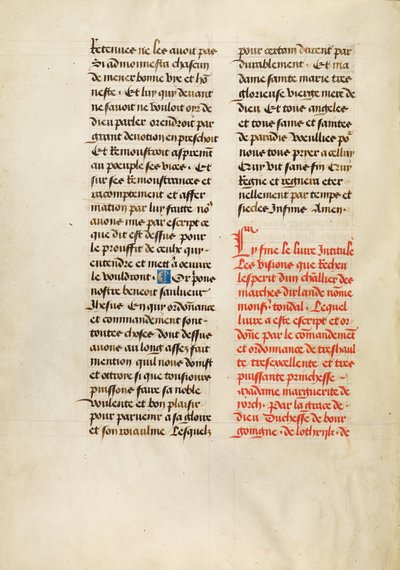 Retenues ne les auoit pas
Si admonnesta chascun
de mener bonne vye et hõ
neste . Et luy qui deuant
ne sauoit ne vouloit oyr de
dieu parler orendroit par
grant deuotion en preschoit
Et Remoustroit asprement
au poeuple ses vices . Et
sur ses Remoustrances et
racomptement et affer
mation par luy faitte noꝰ
auons mis par escript ce
que dit est dessus pour
le prouffit de ceulx qui
entendre et mettre a oeuure
le vouldront . Or prions
nostre benoit saulueur
Jhesus En qui ordonnance
et commandement sont
toutes choses dont dessus
auons au long assez fait
mention quil nous doinst
et ottroie si que tousiours
puissons faire sa noble
voulente et bon plaisir
pour paruenir a sa gloire
et son roiaulme Lesquelz
pour certain durent par
durablement . Et ma
dame sainte marie tres
glorieuse vierge mere de
dieu Et tous angeles
et tous sains et saintes
de paradis Voeullies poꝰ
nous tous pryer a celluy
Quy vit sans fin Quy
Regne et regnera eter
nellement par temps et
siecles Infinis Amen .
Cy fine le liure Intitule
Les visions que Recheu
lesperit dun chlỹalier des
marches dirlande nõme
monsʳ tondal . Lequel
liure a este escript et or
donne par le cõmandement
et ordonnance de treshaul
te tresexellente et tres
puissante princhesse
Madame marguerite de
yorch . Par la grace de
dieu Duchesse de bour
goingne . de lothrijk . de